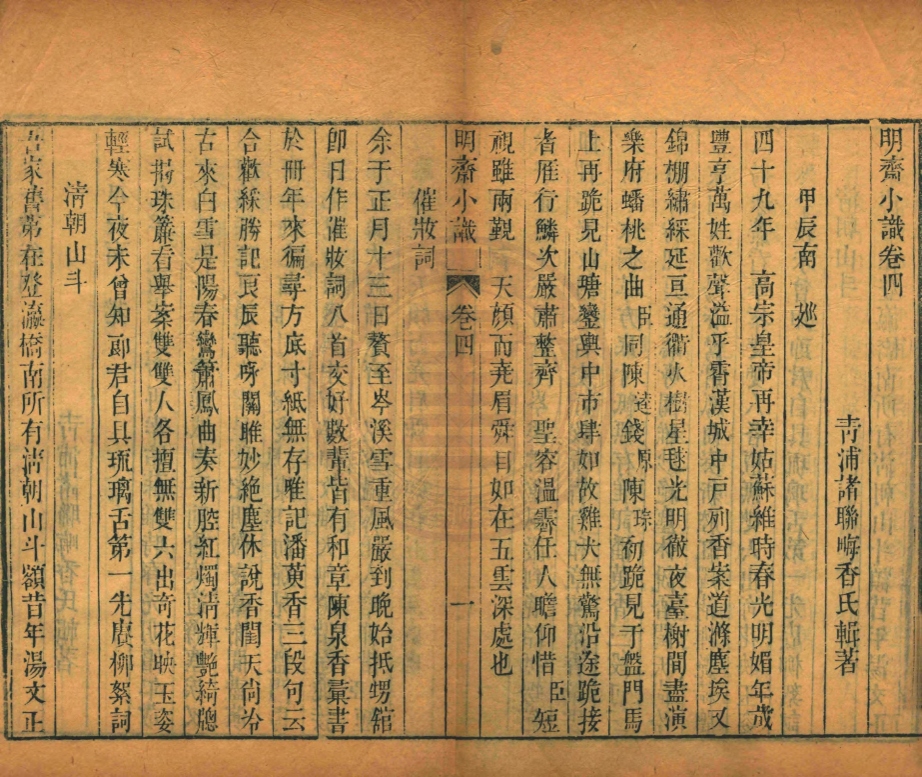 明齋小識卷四
青浦諸聯晦香氏輯著
甲辰南 廵
四十九年 高宗皇帝再幸姑蘇維時春光明媚年歲
豐亨萬姓歡聲溢乎霄漢城中戸列香案道滌塵埃又
錦棚繡綵延亘通衢火樹星毬光明徹夜臺榭間盡演
樂府蟠桃之曲臣同陳逵錢原陳琮初跪見于盤門馬
上再跪見山塘鑾輿中市肆如故雞犬無驚沿途跪接
者雁行鱗次嚴肅整齊 聖容溫霽任人瞻仰惜臣短
視雖兩覲 天顏而堯眉舜目如在五雲深處也
明齋小識 卷四 一
催妝詞
余于正月十三日贅至岑溪雪重風嚴到晚始抵甥舘
卽日作催妝詞八首友好數輩皆有和章陳泉香彚書
於冊年來徧尋方底寸紙無存唯記潘萸香三段句云
合歡綵勝記良辰聽呀關雎妙絶塵休說香閨天尙冷
古來白雪是陽春鸞簫鳳曲奏新腔紅燭淸輝艷綺牕
試搴珠簾看舉案雙雙人各擅無雙六出奇花映玉姿
輕寒今夜未曾知郎君自具琉璃舌第一先賡柳絮詞
淸朝山斗
吾家舊第在登瀛橋南所有淸朝山斗額昔年湯文正